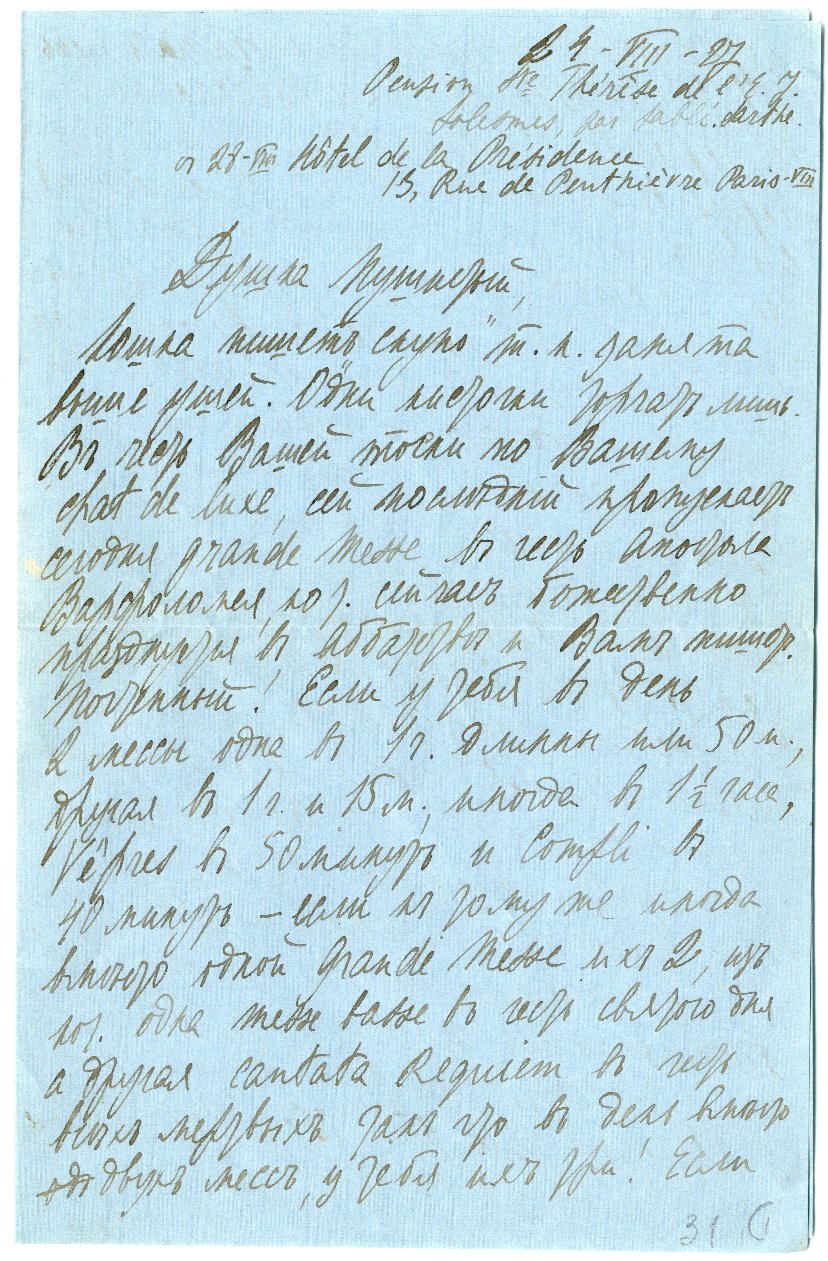 24-VIII-27
Pension Ste Thérèse de l'E. J.
Solesmes, par Sablé. Sarthe.
от 28-VIII Hôtel de la Présidence
13, Rue de Penthièvre Paris-VIII
Душка Пушистый,
Кошка пишетъ „скупо" т. к. занята
выше ушей. Одни кисточки торчатъ лишь.
Въ честь Вашей тоски по Вашему
chat de luxe, сей послѣдній пропускаетъ
сегодня grande Messe въ честь Апостола
Варфоломея, кот. сейчасъ божественно
празднуется въ Аббатствѣ и Вамъ пишет.
Почтенный! Если у тебя въ день
2 мессы одна въ 1 г. длинны или 50 м.,
другая въ 1 г. и 15 м., иногда въ 1½ часа,
Vêpres въ 50 минутъ и Compli въ
40 минутъ – если къ тому же иногда
вмѣсто одной Grande Messe ихъ 2, изъ
кот. одна messe basse въ честь святого дня
а другая cantata Requiem въ честь
всѣхъ мертвыхъ такъ что въ день вмѣсто
двухъ мессъ, у тебя ихъ три! Если
31 1